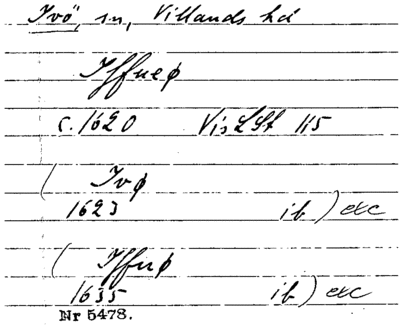 Ivö, sn, Villands hd
Iffueø
c. 1620 VisLSt 115
( Ivø
1623 ib ) exc
( Iffuø
1635 ib ) exc
Nr 5478.